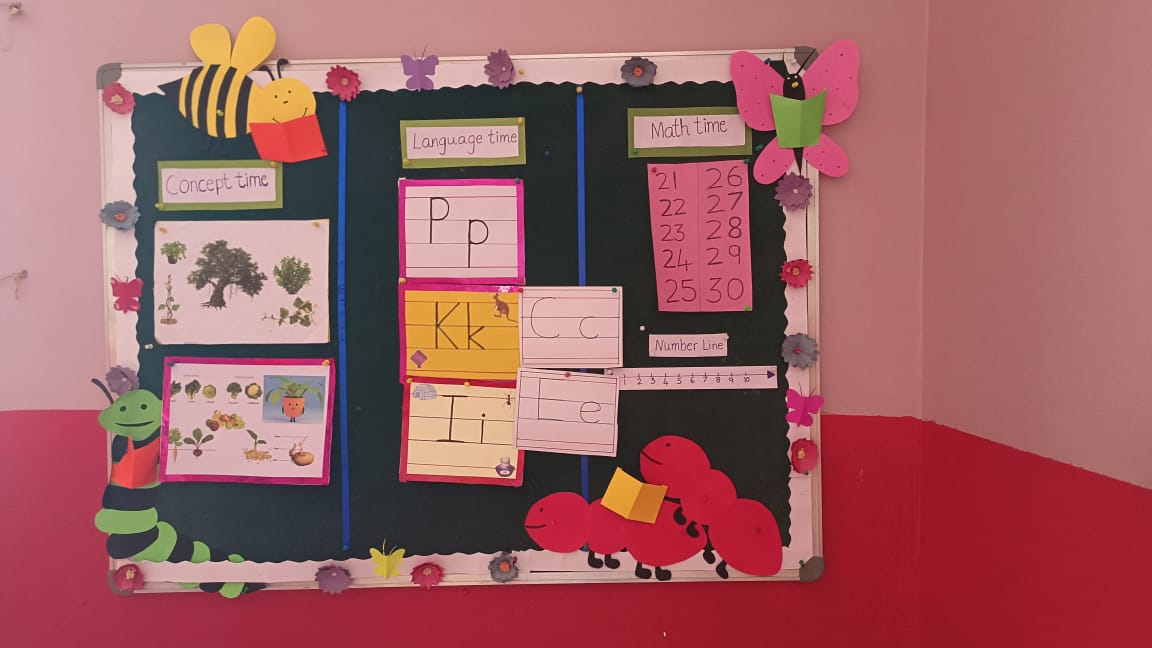 Concept time
Language time
Pp
Kk
Cc
Ii
Ee
Math time
21 26
22 27
23 28
24 29
25 30
Number Line
1 2 3 4 5 6 7 8 9 10